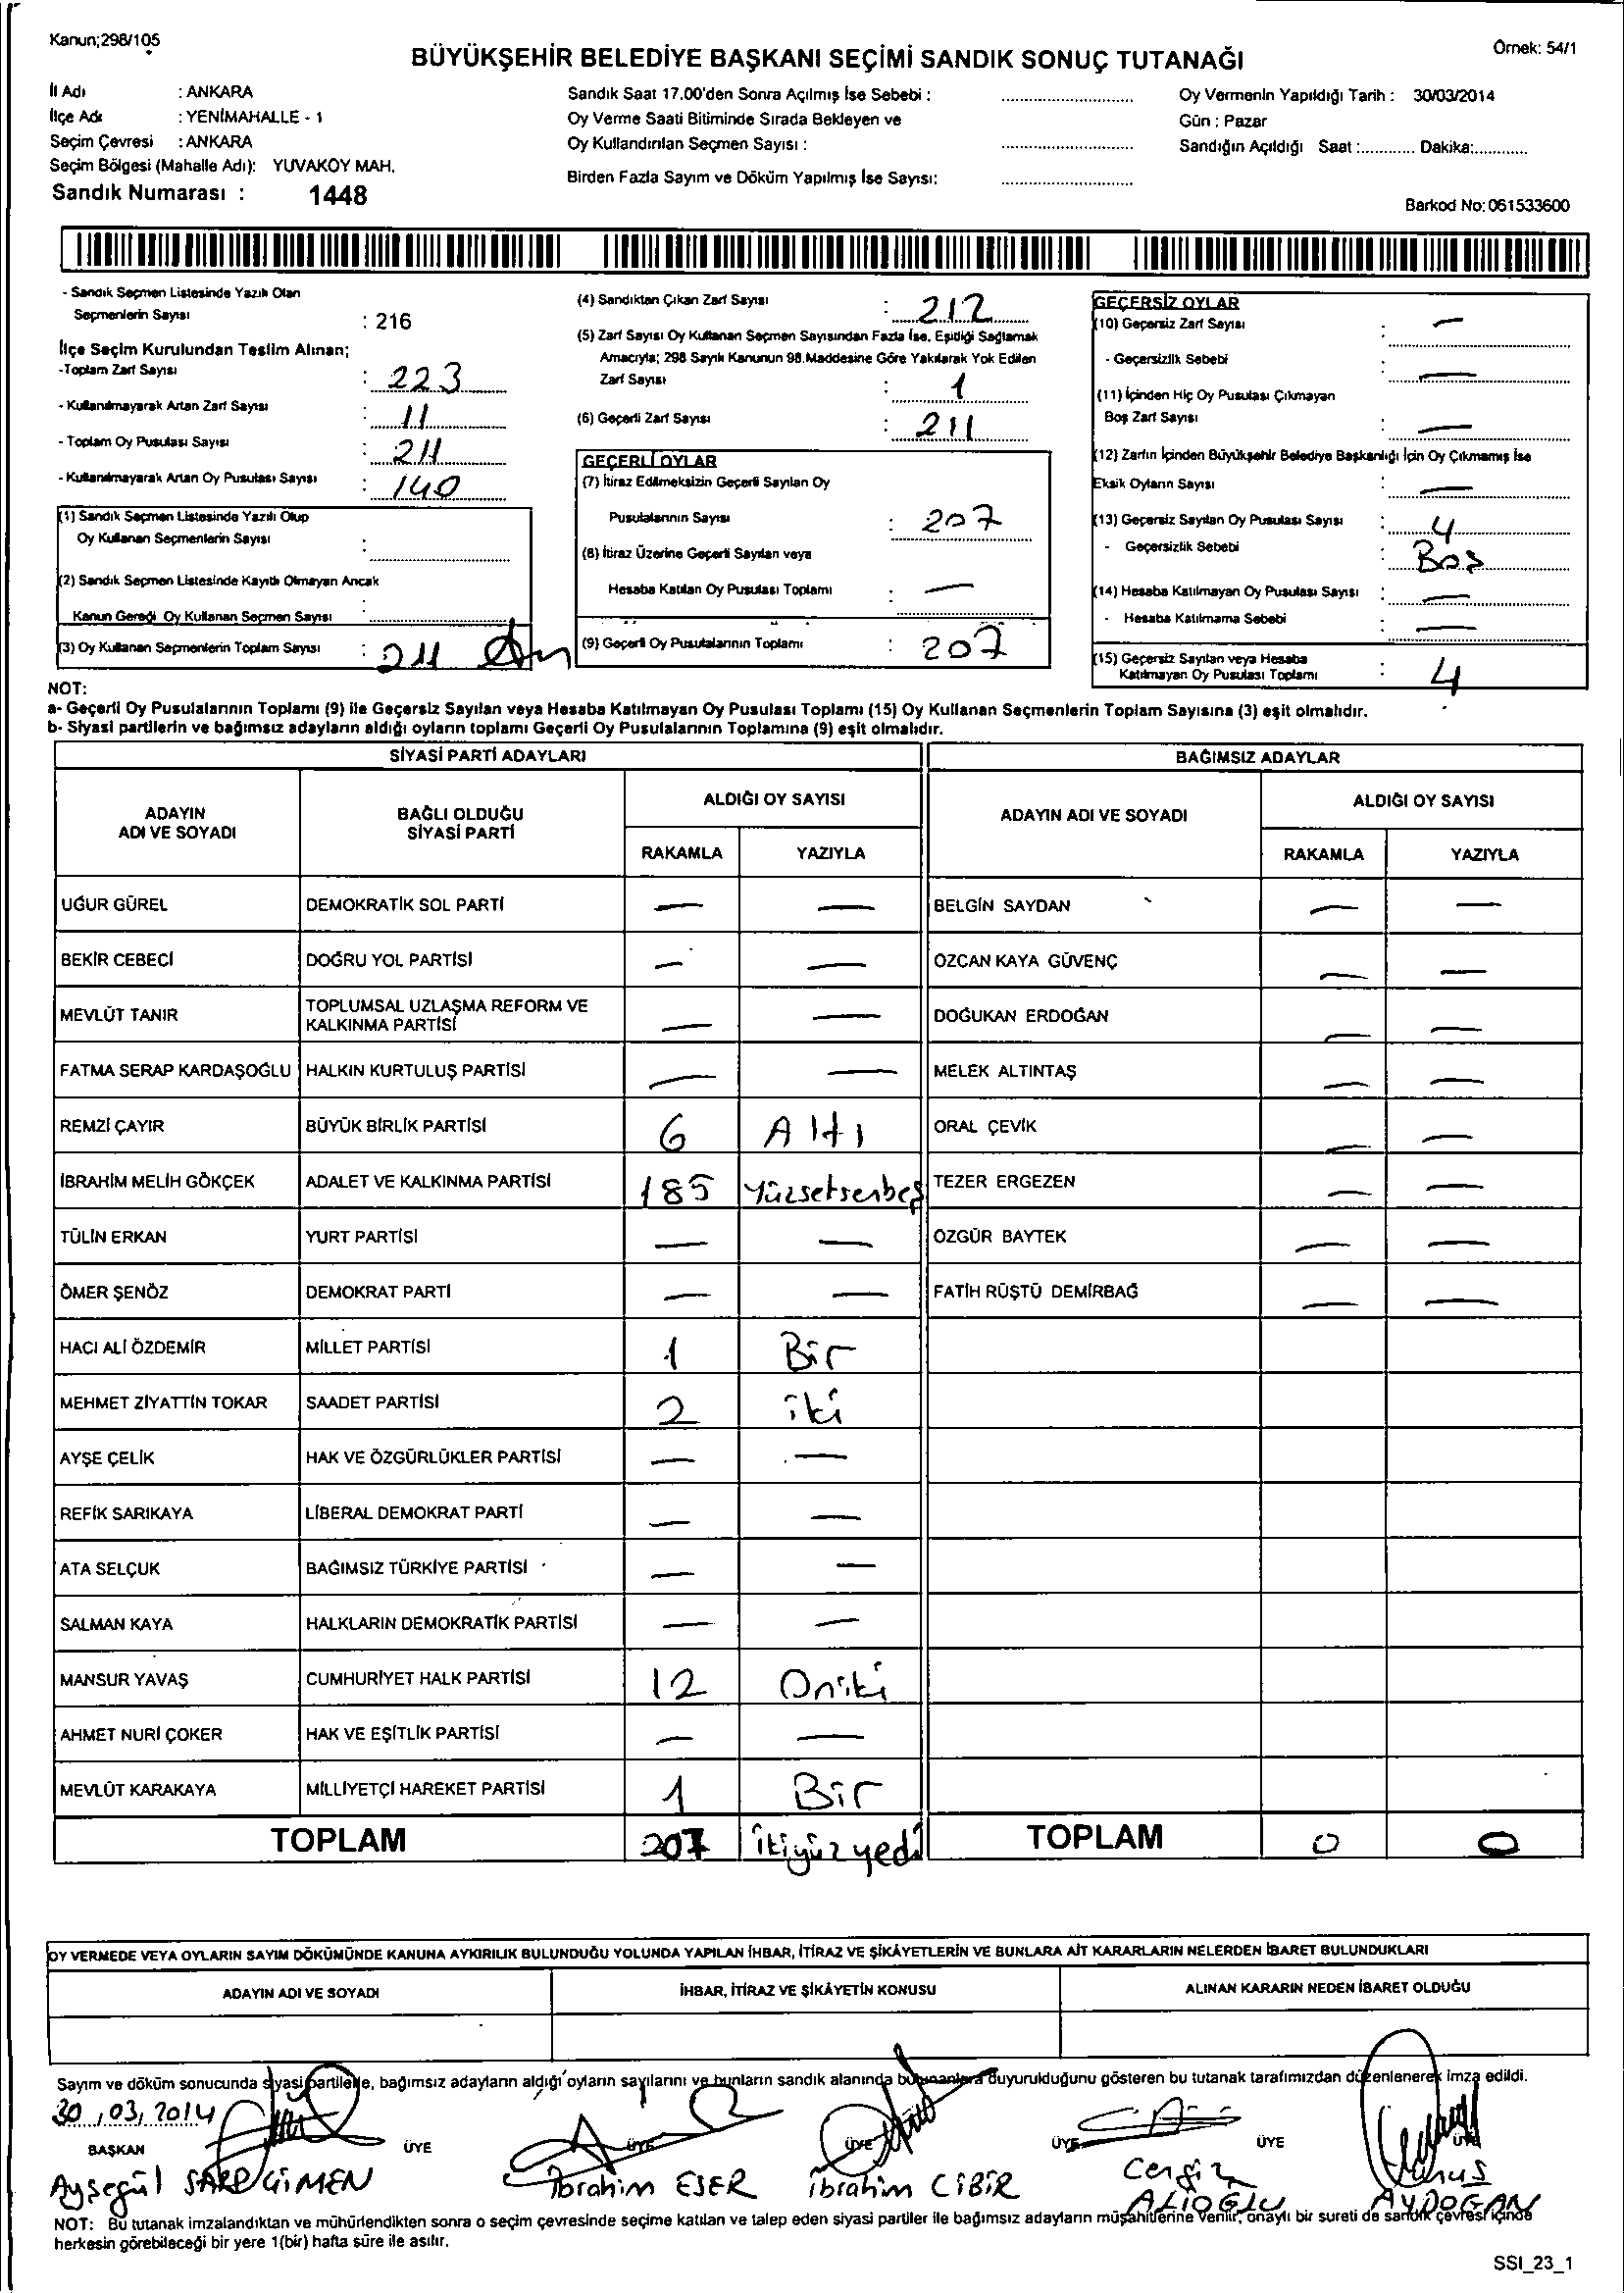 Kanun;298/105
BÜYÜKŞEHİR BELEDİYE BAŞKANI SEÇİMİ SANDIK SONUÇ TUTANAĞI
Örnek: 54/1
İl Adı : ANKARA
İlçe Adı : YENİMAHALLE - 1
Seçim Çevresi : ANKARA
Seçim Bölgesi (Mahalle Adı): YUVAKÖY MAH.
Sandık Numarası : 1448
Sandık Saat 17.00'den Sonra Açılmış İse Sebebi : ..............
Oy Verme Saati Bitiminde Sırada Bekleyen ve
Oy Kullandırılan Seçmen Sayısı : ..............
Birden Fazla Sayım ve Döküm Yapılmış İse Sayısı: ..............
Oy Vermenin Yapıldığı Tarih : 30/03/2014
Gün : Pazar
Sandığın Açıldığı Saat :............ Dakika:............
Barkod No: 061533600
- Sandık Seçmen Listesinde Yazılı Olan
Seçmenlerin Sayısı : 216
İlçe Seçim Kurulundan Teslim Alınan;
-Toplam Zarf Sayısı : 223
- Kullanılmayarak Artan Zarf Sayısı : 11
- Toplam Oy Pusulası Sayısı : 211
- Kullanılmayarak Artan Oy Pusulası Sayısı : 140
(1) Sandık Seçmen Listesinde Yazılı Olup
Oy Kullanan Seçmenlerin Sayısı :
(2) Sandık Seçmen Listesinde Kayıtlı Olmayan Ancak
Kanun Gereği Oy Kullanan Seçmen Sayısı :
(3) Oy Kullanan Seçmenlerin Toplam Sayısı : 211
(4) Sandıktan Çıkan Zarf Sayısı : 212
(5) Zarf Sayısı Oy Kullanan Seçmen Sayısından Fazla İse, Eşitliği Sağlamak
Amacıyla; 298 Sayılı Kanunun 98.Maddesine Göre Yakılarak Yok Edilen
Zarf Sayısı : 1
(6) Geçerli Zarf Sayısı : 211
GEÇERLİ OYLAR
(7) İtiraz Edilmeksizin Geçerli Sayılan Oy
Pusulalarının Sayısı : 207
(8) İtiraz Üzerine Geçerli Sayılan veya
Hesaba Katılan Oy Pusulası Toplamı : —
(9) Geçerli Oy Pusulalarının Toplamı : 207
GEÇERSİZ OYLAR
(10) Geçersiz Zarf Sayısı : —
- Geçersizlik Sebebi : —
(11) İçinden Hiç Oy Pusulası Çıkmayan
Boş Zarf Sayısı : —
(12) Zarfın İçinden Büyükşehir Belediye Başkanlığı İçin Oy Çıkmamış İse
Eksik Oyların Sayısı : —
(13) Geçersiz Sayılan Oy Pusulası Sayısı : 4
- Geçersizlik Sebebi : Boş
(14) Hesaba Katılmayan Oy Pusulası Sayısı : —
- Hesaba Katılmama Sebebi : —
(15) Geçersiz Sayılan veya Hesaba
Katılmayan Oy Pusulası Toplamı : 4
NOT:
a- Geçerli Oy Pusulalarının Toplamı (9) ile Geçersiz Sayılan veya Hesaba Katılmayan Oy Pusulası Toplamı (15) Oy Kullanan Seçmenlerin Toplam Sayısına (3) eşit olmalıdır.
b- Siyasi partilerin ve bağımsız adayların aldığı oyların toplamı Geçerli Oy Pusulalarının Toplamına (9) eşit olmalıdır.
SİYASİ PARTİ ADAYLARI BAĞIMSIZ ADAYLAR
ADAYIN ADI VE SOYADI BAĞLI OLDUĞU SİYASİ PARTİ ALDIĞI OY SAYISI ADAYIN ADI VE SOYADI ALDIĞI OY SAYISI
RAKAMLA YAZIYLA RAKAMLA YAZIYLA
UĞUR GÜREL DEMOKRATİK SOL PARTİ — — BELGİN SAYDAN — —
BEKİR CEBECİ DOĞRU YOL PARTİSİ — — ÖZCAN KAYA GÜVENÇ — —
MEVLÜT TANIR TOPLUMSAL UZLAŞMA REFORM VE KALKINMA PARTİSİ — — DOĞUKAN ERDOĞAN — —
FATMA SERAP KARDAŞOĞLU HALKIN KURTULUŞ PARTİSİ — — MELEK ALTINTAŞ — —
REMZİ ÇAYIR BÜYÜK BİRLİK PARTİSİ 6 Altı ORAL ÇEVİK — —
İBRAHİM MELİH GÖKÇEK ADALET VE KALKINMA PARTİSİ 185 Yüzsetsenbeş TEZER ERGEZEN — —
TÜLİN ERKAN YURT PARTİSİ — — ÖZGÜR BAYTEK — —
ÖMER ŞENÖZ DEMOKRAT PARTİ — — FATİH RÜŞTÜ DEMİRBAĞ — —
HACI ALİ ÖZDEMİR MİLLET PARTİSİ 1 Bir
MEHMET ZİYATTİN TOKAR SAADET PARTİSİ 2 iki
AYŞE ÇELİK HAK VE ÖZGÜRLÜKLER PARTİSİ — —
REFİK SARIKAYA LİBERAL DEMOKRAT PARTİ — —
ATA SELÇUK BAĞIMSIZ TÜRKİYE PARTİSİ — —
SALMAN KAYA HALKLARIN DEMOKRATİK PARTİSİ — —
MANSUR YAVAŞ CUMHURİYET HALK PARTİSİ 12 Oniki
AHMET NURİ ÇOKER HAK VE EŞİTLİK PARTİSİ — —
MEVLÜT KARAKAYA MİLLİYETÇİ HAREKET PARTİSİ 1 Bir
TOPLAM 207 ikiyüzyedi TOPLAM 0 0
OY VERMEDE VEYA OYLARIN SAYIM DÖKÜMÜNDE KANUNA AYKIRILIK BULUNDUĞU YOLUNDA YAPILAN İHBAR, İTİRAZ VE ŞİKÂYETLERİN VE BUNLARA AİT KARARLARIN NELERDEN İBARET BULUNDUKLARI
ADAYIN ADI VE SOYADI İHBAR, İTİRAZ VE ŞİKÂYETİN KONUSU ALINAN KARARIN NEDEN İBARET OLDUĞU
Sayım ve döküm sonucunda siyasi partilerle, bağımsız adayların aldığı oyların sayılarını ve bunların sandık alanında bulunanlara duyurulduğunu gösteren bu tutanak tarafımızdan düzenlenerek imza edildi.
30/03/2014
BAŞKAN ÜYE ÜYE ÜYE ÜYE ÜYE ÜYE
Ayşegül İbrahim ESER ibrahim CİBİR Cengiz ALİOĞLU Yunus AYDOĞAN
NOT: Bu tutanak imzalandıktan ve mühürlendikten sonra o seçim çevresinde seçime katılan ve talep eden siyasi partiler ile bağımsız adayların müşahitlerine verilir, onaylı bir sureti de sandık çevresi içinde
herkesin görebileceği bir yere 1(bir) hafta süre ile asılır.
SSI_23_1